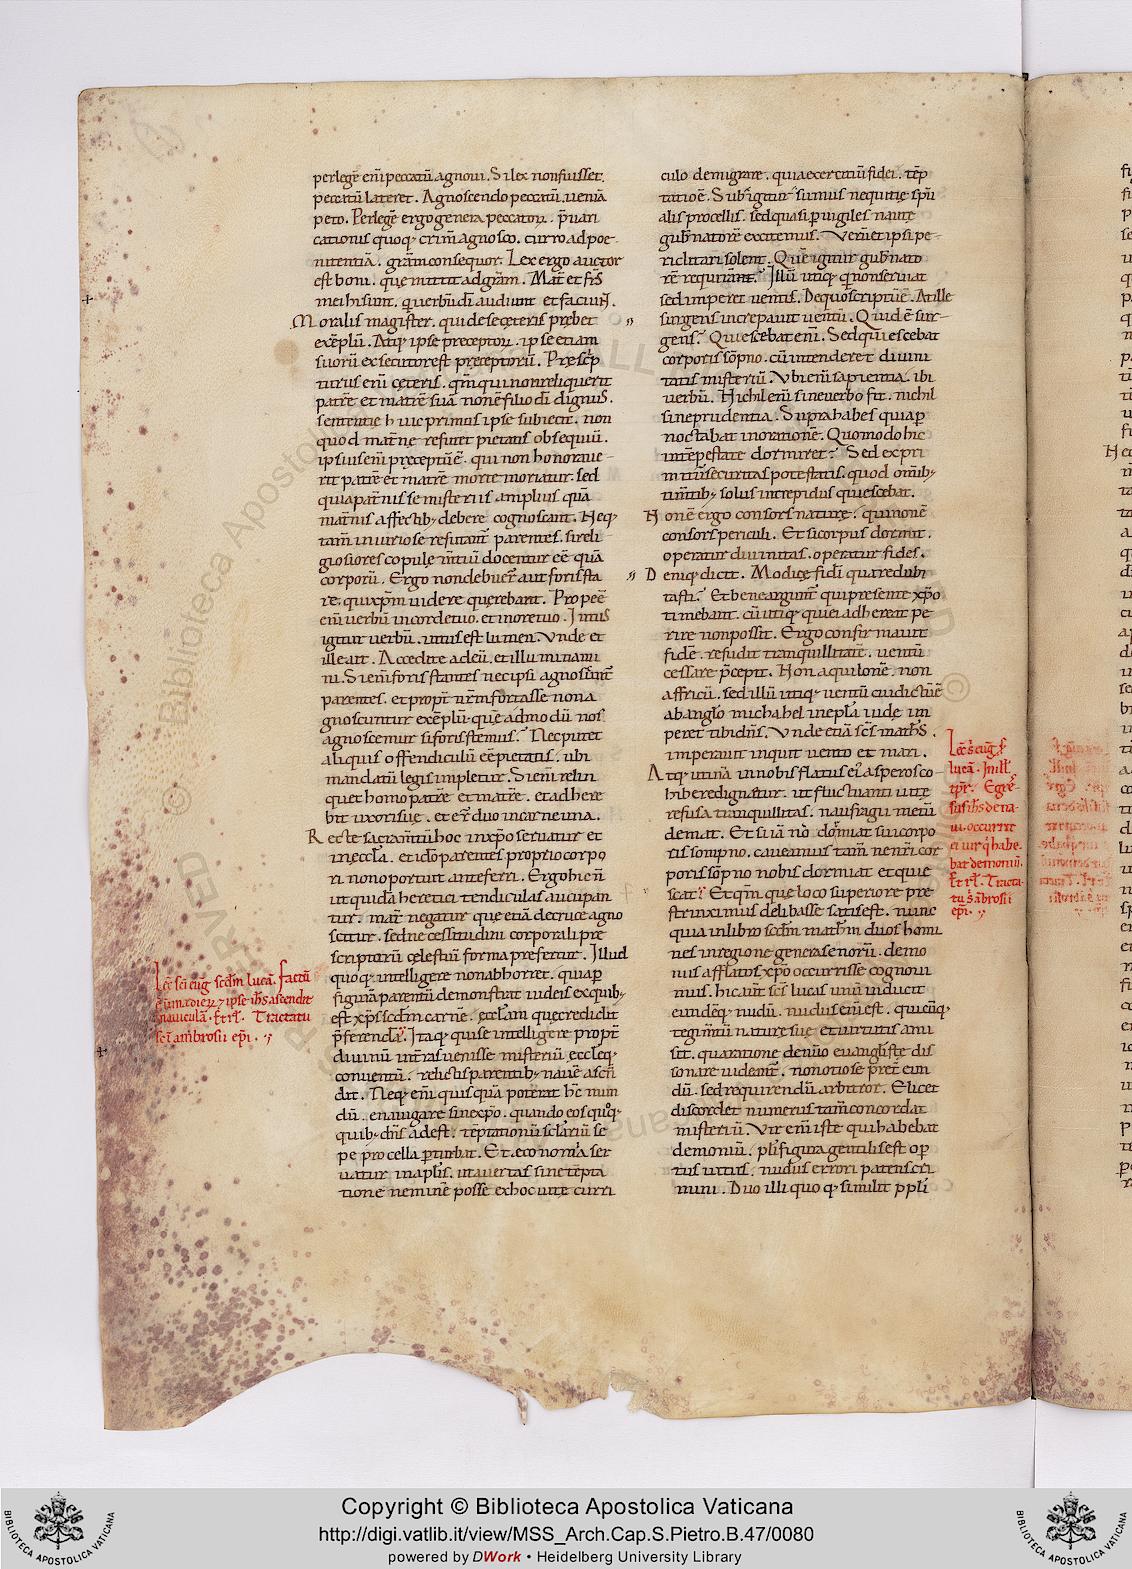 perlegē eni peccatū agnoui. Si lex non fuisset
peccatū lateret. Agnoscendo peccatū. ueniā
peto. Perlegē ergo genera peccatorꝝ. p̄uari
cationis quoq; crim̄ agnosco. curro ad poe
nitentiā. grām consequor. Lex ergo auctor
est boni. que mittit ad grām. Mat̄ et fr̄s
mei hi sunt. qui uerbū dī audiunt et faciunt.
Moralis magister. qui de se ceteris prebet
exēplū. Atq; ipse preceptorꝝ. ipse etiam
suorū exsecutor est preceptorū. Prescp̄
turus eni ceteris. qm̄ qui non reliquerit
patrē et matrē suā non ē filio dī dignus.
sententie huic primus ipse subiecit. non
quod mat̄ne refutet pietatis obsequiū.
ipsius eni preceptū ē. qui non honoraue
rit patrē et matrē morte moriatur. sed
quia pat̄nis se misteriis amplius quā
mat̄nis affectib; debere cognoscant. Neq;
tam̄ iniuriose refutant̄ parentes. si reli
giosiores copule m̄tiū docentur ēē quā
corporū. Ergo non debuer̄ aut foris sta
re. qui xp̄m uidere querebant. Prope ē
eni uerbū in corde tuo. et in ore tuo. Intus
igitur uerbū. intus est lumen. Vnde et
ille ait. Accedite ad eū. et illuminami
ni. Si eni foris stantes nec ipsi agnoscunt̄
parentes. et propt̄ nr̄m fortasse non a
gnoscuntur exēplū. quē admodū nos
agnoscemur si foris stemus? Nec putet
aliquis offendiculū ēē pietatis. ubi
mandatū legis impletur. Si eni relin
quet homo patrē et matrē. et adhere
bit uxori sue. et er̄ duo in carne una.
Recte sacram̄tū hoc in xp̄o seruatur et
in eccl̄a. et idō parentes proprio corpo
ri non oportuit anteferri. Ergo hic n̄
ut quidā heretici tendiculas aucupan
tur. mat̄ negatur que etiā de cruce agno
scitur. sed necessitudini corporali pre
scriptorū celestiū forma prefertur. Illud
quoq; intelligere non abhorret. quia p̄
figurā parentū demonstrat iudeis ex quib;
est xp̄s scd̄m carnē. eccl̄am que credidit
p̄ferendā. Itaq; qui se intelligere propt̄
diuinū in terras uenisse misteriū. eccleq;
conuentū. relictis parentib; nauē ascn̄
dit. Neq; eni quisquā poterat hc̄ mun
dū. enauigare sine xp̄o. quando eos quoq;
quib; dn̄s adest. tēptationū sclariū se
pe procella pturbat. Et economia ser
uatur in apl̄is. ut auertas sine tēpta
tione neminē posse ex hoc uite curri
Lc̄ sc̄i euḡ scd̄m lucā. Factū
ē in una dierꝝ ⁊ ipse ih̄s ascendit
nauiculā. Et rl̄. Tractatu
sc̄i ambrosii ep̄i.
culo demigrare. quia exercitiū fidei. tēp
tatio ē. Subigitur sumus nequitie spū
alis procellis. sed quasi puigiles naute
gub̄natorē excitemus. Verū et ipsi pe
riclitari solent. Quē igitur gub̄nato
rē requirant? Illū utiq; q non seruiat
sed imperet uentis. De quo scriptū ē. At ille
surgens increpauit uentū. Quid ē sur
gens? Quiescebat eni. Sed quiescebat
corporis sōpno. cū intenderet diuini
tatis misteriū. Vbi eni sapientia. ibi
uerbū. Nichil eni sine uerbo fit. nichil
sine prudentia. Supra habes quia p
noctabat in oratione. Quomodo hic
in tēpestate dormiret? Sed expri
mitur securitas potestatis. quod om̄ib;
tim̄tib; solus intrepidus quiescebat.
Non ē ergo consors nature. qui non ē
consors periculi. Et si corpus dormit.
operatur diuinitas. operatur fides.
Deniq; dicit. Modice fidī quare dubi
tasti? Et bene arguunt̄ qui presente xp̄o
timebant. cū utiq; qui ei adhereat pe
rire non possit. Ergo confirmauit
fidē. refudit tranquillitatē. uentū
cessare p̄cepit. Non aquilonē. non
affricū. sed illū utiq; uentū cui dictū ē
ab anglo michahel in epl̄a iude im
peret tibi dn̄s. Vnde etiā sc̄s math̄s.
imperauit inquit uento et mari.
Atq; utinā in nobis flatus ei asperos co
hibere dignetur. ut fluctuanti uite
refusa tranquillitas. naufragii metū
demat. Et si iā nō dormiat sui corpo
ris sompno. caueamus tam̄ ne nr̄i cor
poris sōpno nobis dormiat et quie
scat. Et qm̄ que loco superiore pre
strinximus delibasse satis est. nunc
quia in libro scd̄m math̄m duos homi
nes in regione gerasenorū. demo
niis afflatos xp̄o occurrisse cognoui
mus. hic aut̄ sc̄s lucas unū inducit
eundēq; nudū. nudus eni est. quicūq;
tegim̄tū nature sue et uirtutis ami
sit. qua ratione denuo euangliste dis
sonare uideant̄. non otiose pret̄ eun
dū. sed requirendū arbitror. Et licet
discordet numerus tam̄ concordat
misteriū. Vir eni iste qui habebat
demoniū. pl̄i figura gentilis est op̄
tus uitiis. nudus errori patens cri
mini. Duo illi quoq; similit̄ ppl̄i
Lc̄ sc̄i euḡ s̄
lucā. In ill̄
tpr̄. Egre
sus ih̄s de na
ui. occurrit
ei uir q̄ habe
bat demoniū.
Et rl̄. Tracta
tus ābrosii
ep̄i.
Copyright © Biblioteca Apostolica Vaticana
http://digi.vatlib.it/view/MSS_Arch.Cap.S.Pietro.B.47/0080
powered by DWork • Heidelberg University Library
BIBLIOTECA APOSTOLICA VATICANA
BIBLIOTECA APOSTOLICA VATICANA